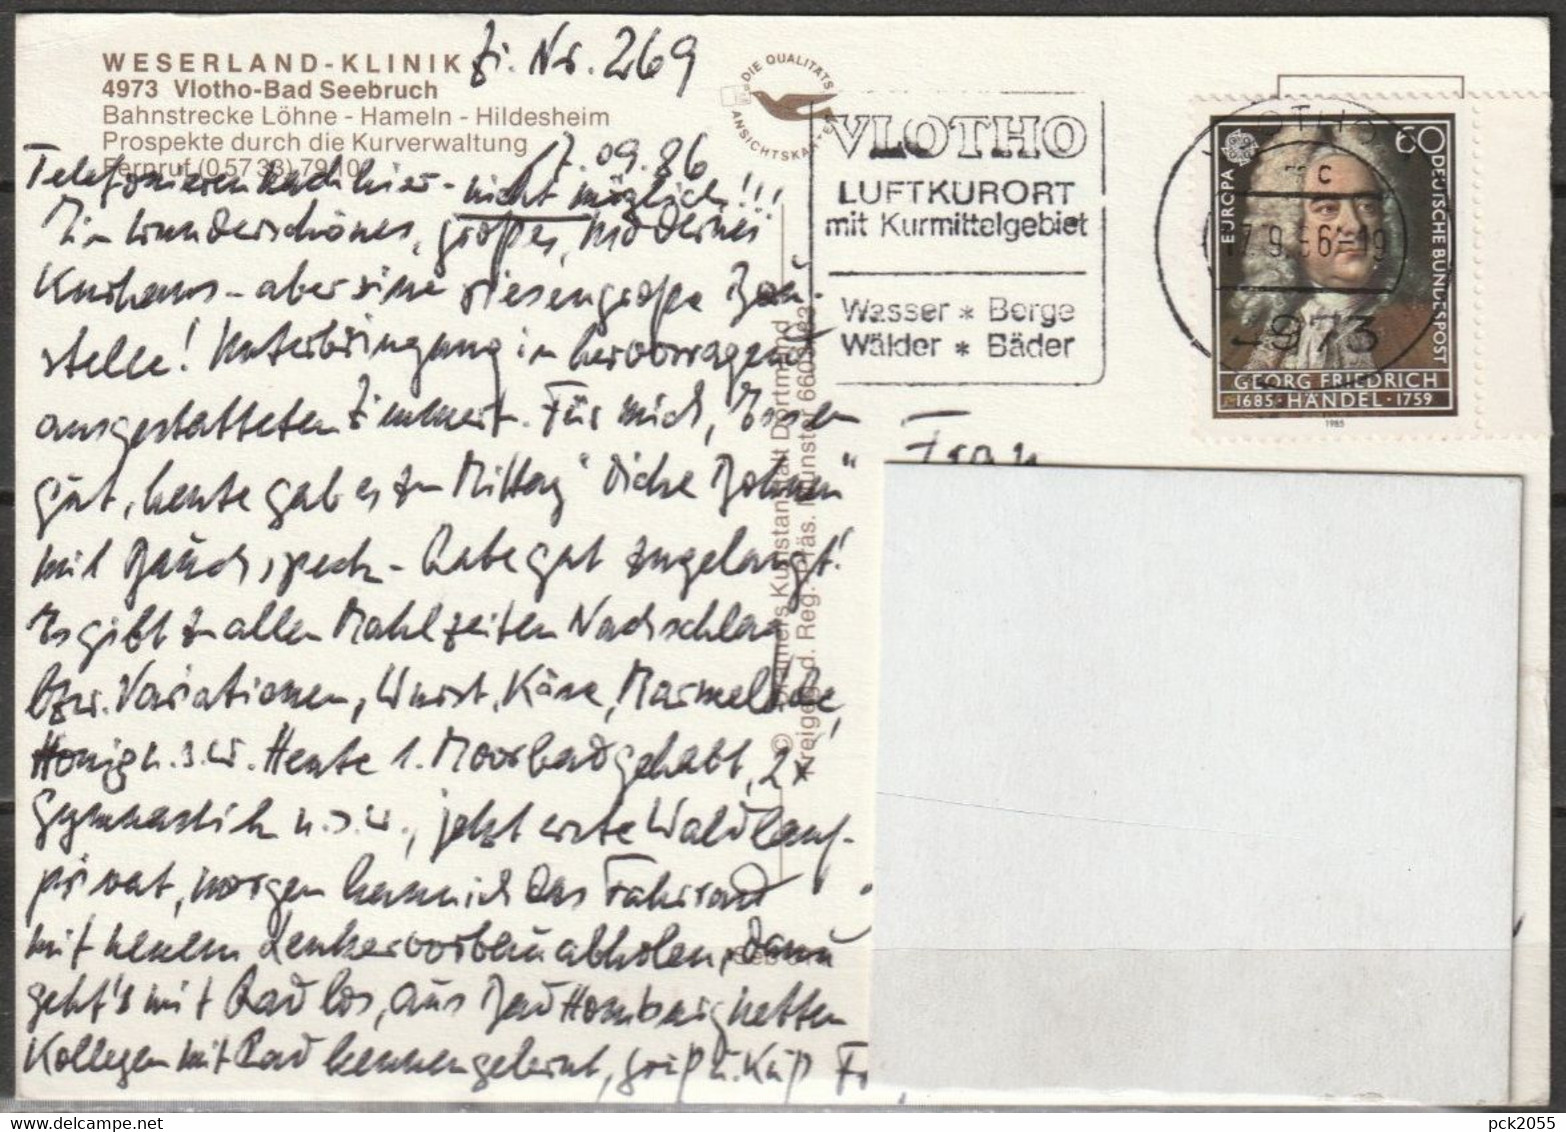 WESERLAND-KLINIK Zi. Nr. 269
4973 Vlotho-Bad Seebruch
Bahnstrecke Löhne - Hameln - Hildesheim
Prospekte durch die Kurverwaltung
Fernruf (05733) 79101
17.09.86
Telefonieren nach hier - nicht möglich!!!
Ein wunderschönes, großes, modernes
Kurhaus - aber eine riesengroße Bau-
stelle! Unterbringung in hervorragend
ausgestatteten Zimmern. Für mich, Essen
gut, heute gab es zu Mittag "Dicke Bohnen"
mit Bauchspeck - habe gut zugelangt!
Es gibt zu allen Mahlzeiten Nachschlag
bzw. Variationen, Wurst, Käse, Marmelade,
Honig u.s.w. Heute 1. Moorbad gehabt, 2x
Gymnastik u.s.w., jetzt erste Waldlauf-
privat, morgen kann ich das Fahrrad
mit neuem Lenkervorbau abholen, dann
geht's mit Rad los, aus Bad Homburg netten
Kollegen mit Rad kennengelernt, Gruß u. Kuß
DIE QUALITÄTS
ANSICHTSKARTE
VLOTHO
LUFTKURORT
mit Kurmittelgebiet
Wasser * Berge
Wälder * Bäder
4973
60
EUROPA
DEUTSCHE BUNDESPOST
GEORG FRIEDRICH
1685 · HÄNDEL · 1759
1985
Frau
pck2055